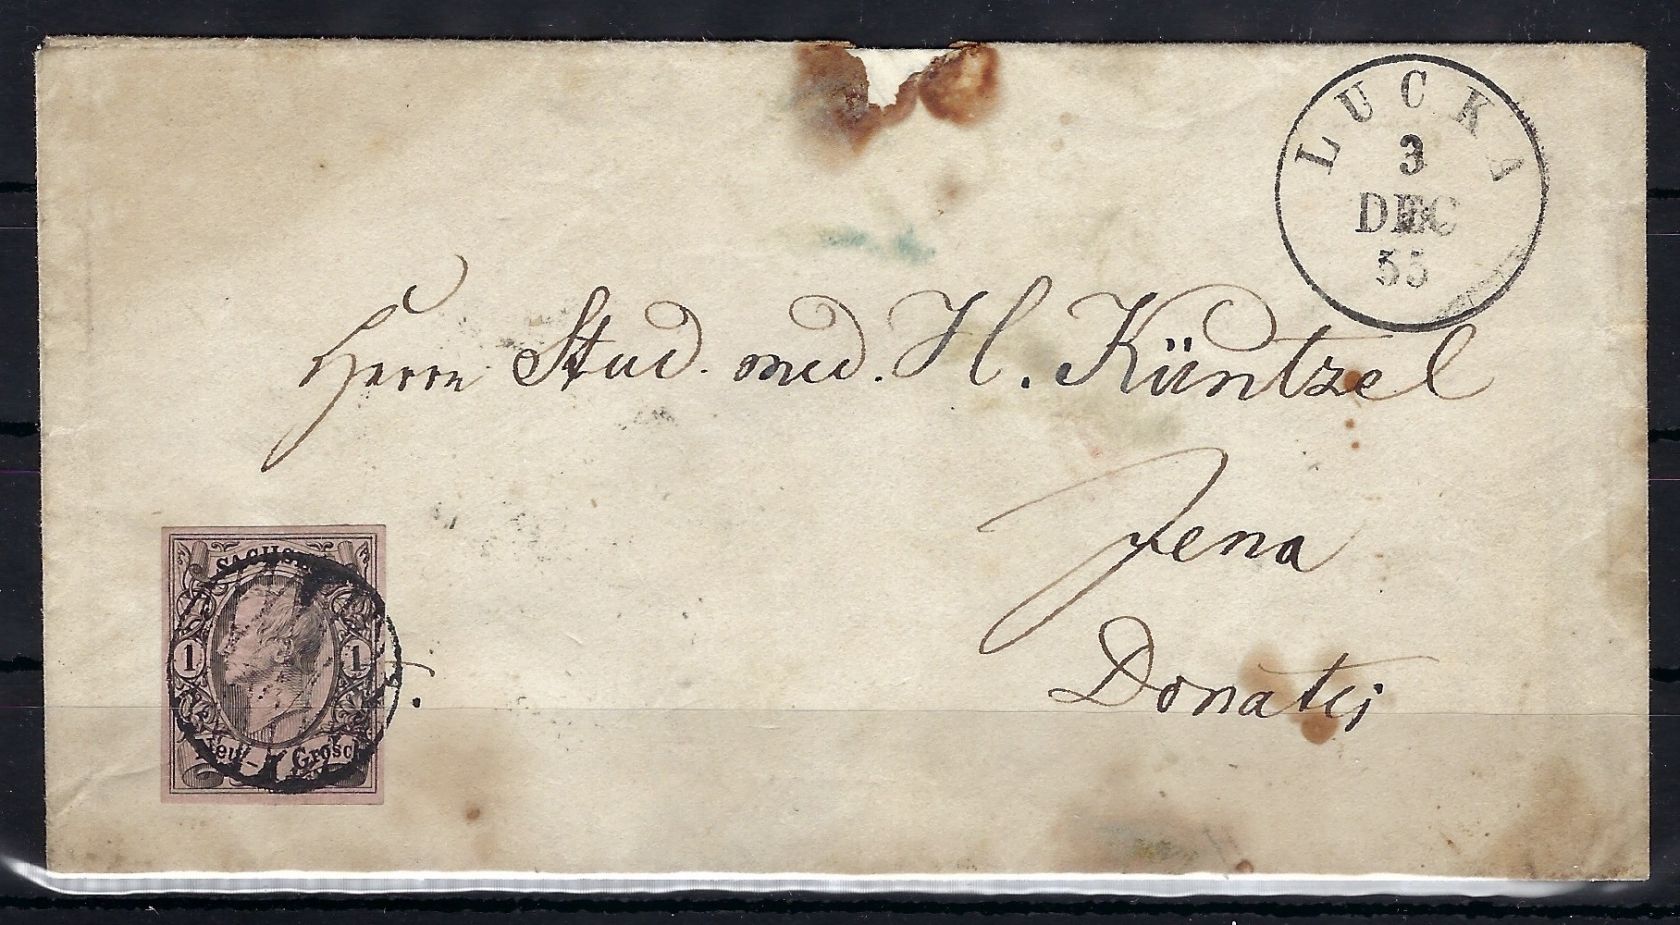 LUCKA
3
DEC
55
Herrn Stud. med. H. Küntzel
Jena
SACHSEN
1 1
Neu- Grosch